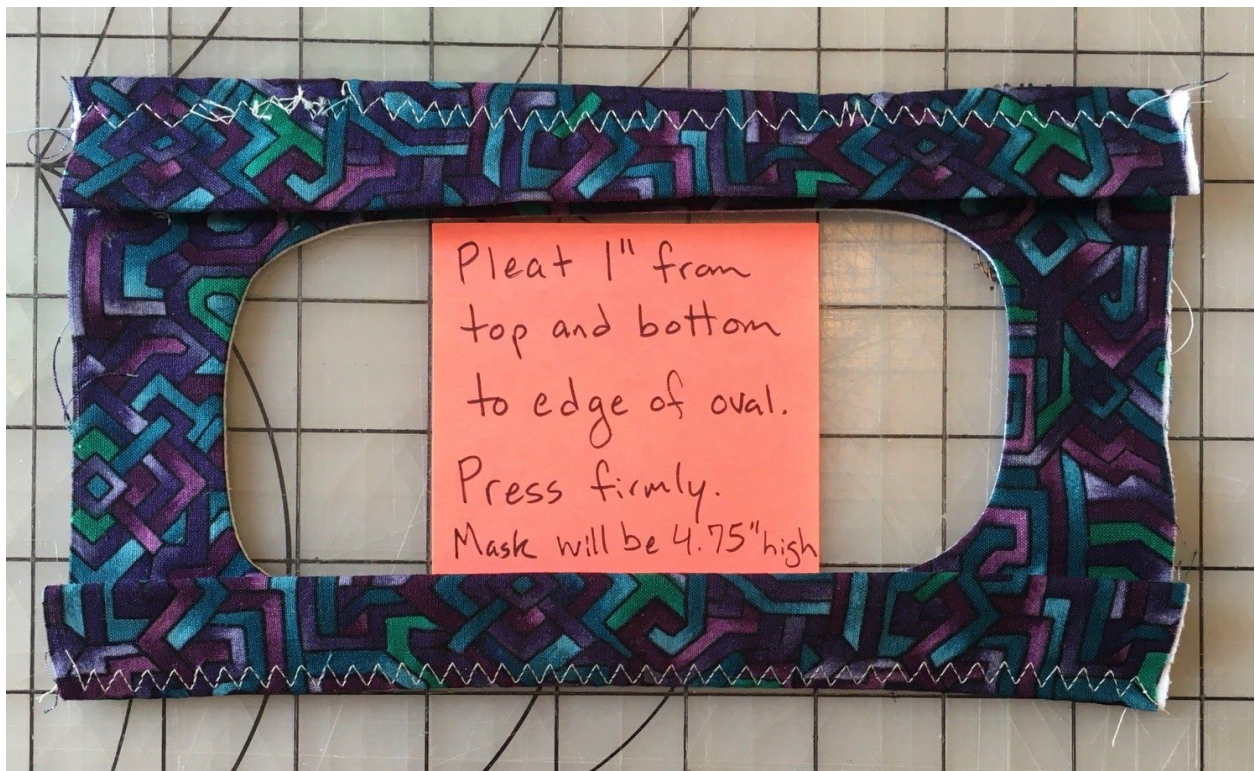 Pleat 1" from
top and bottom
to edge of oval.
Press firmly.
Mask will be 4.75" high